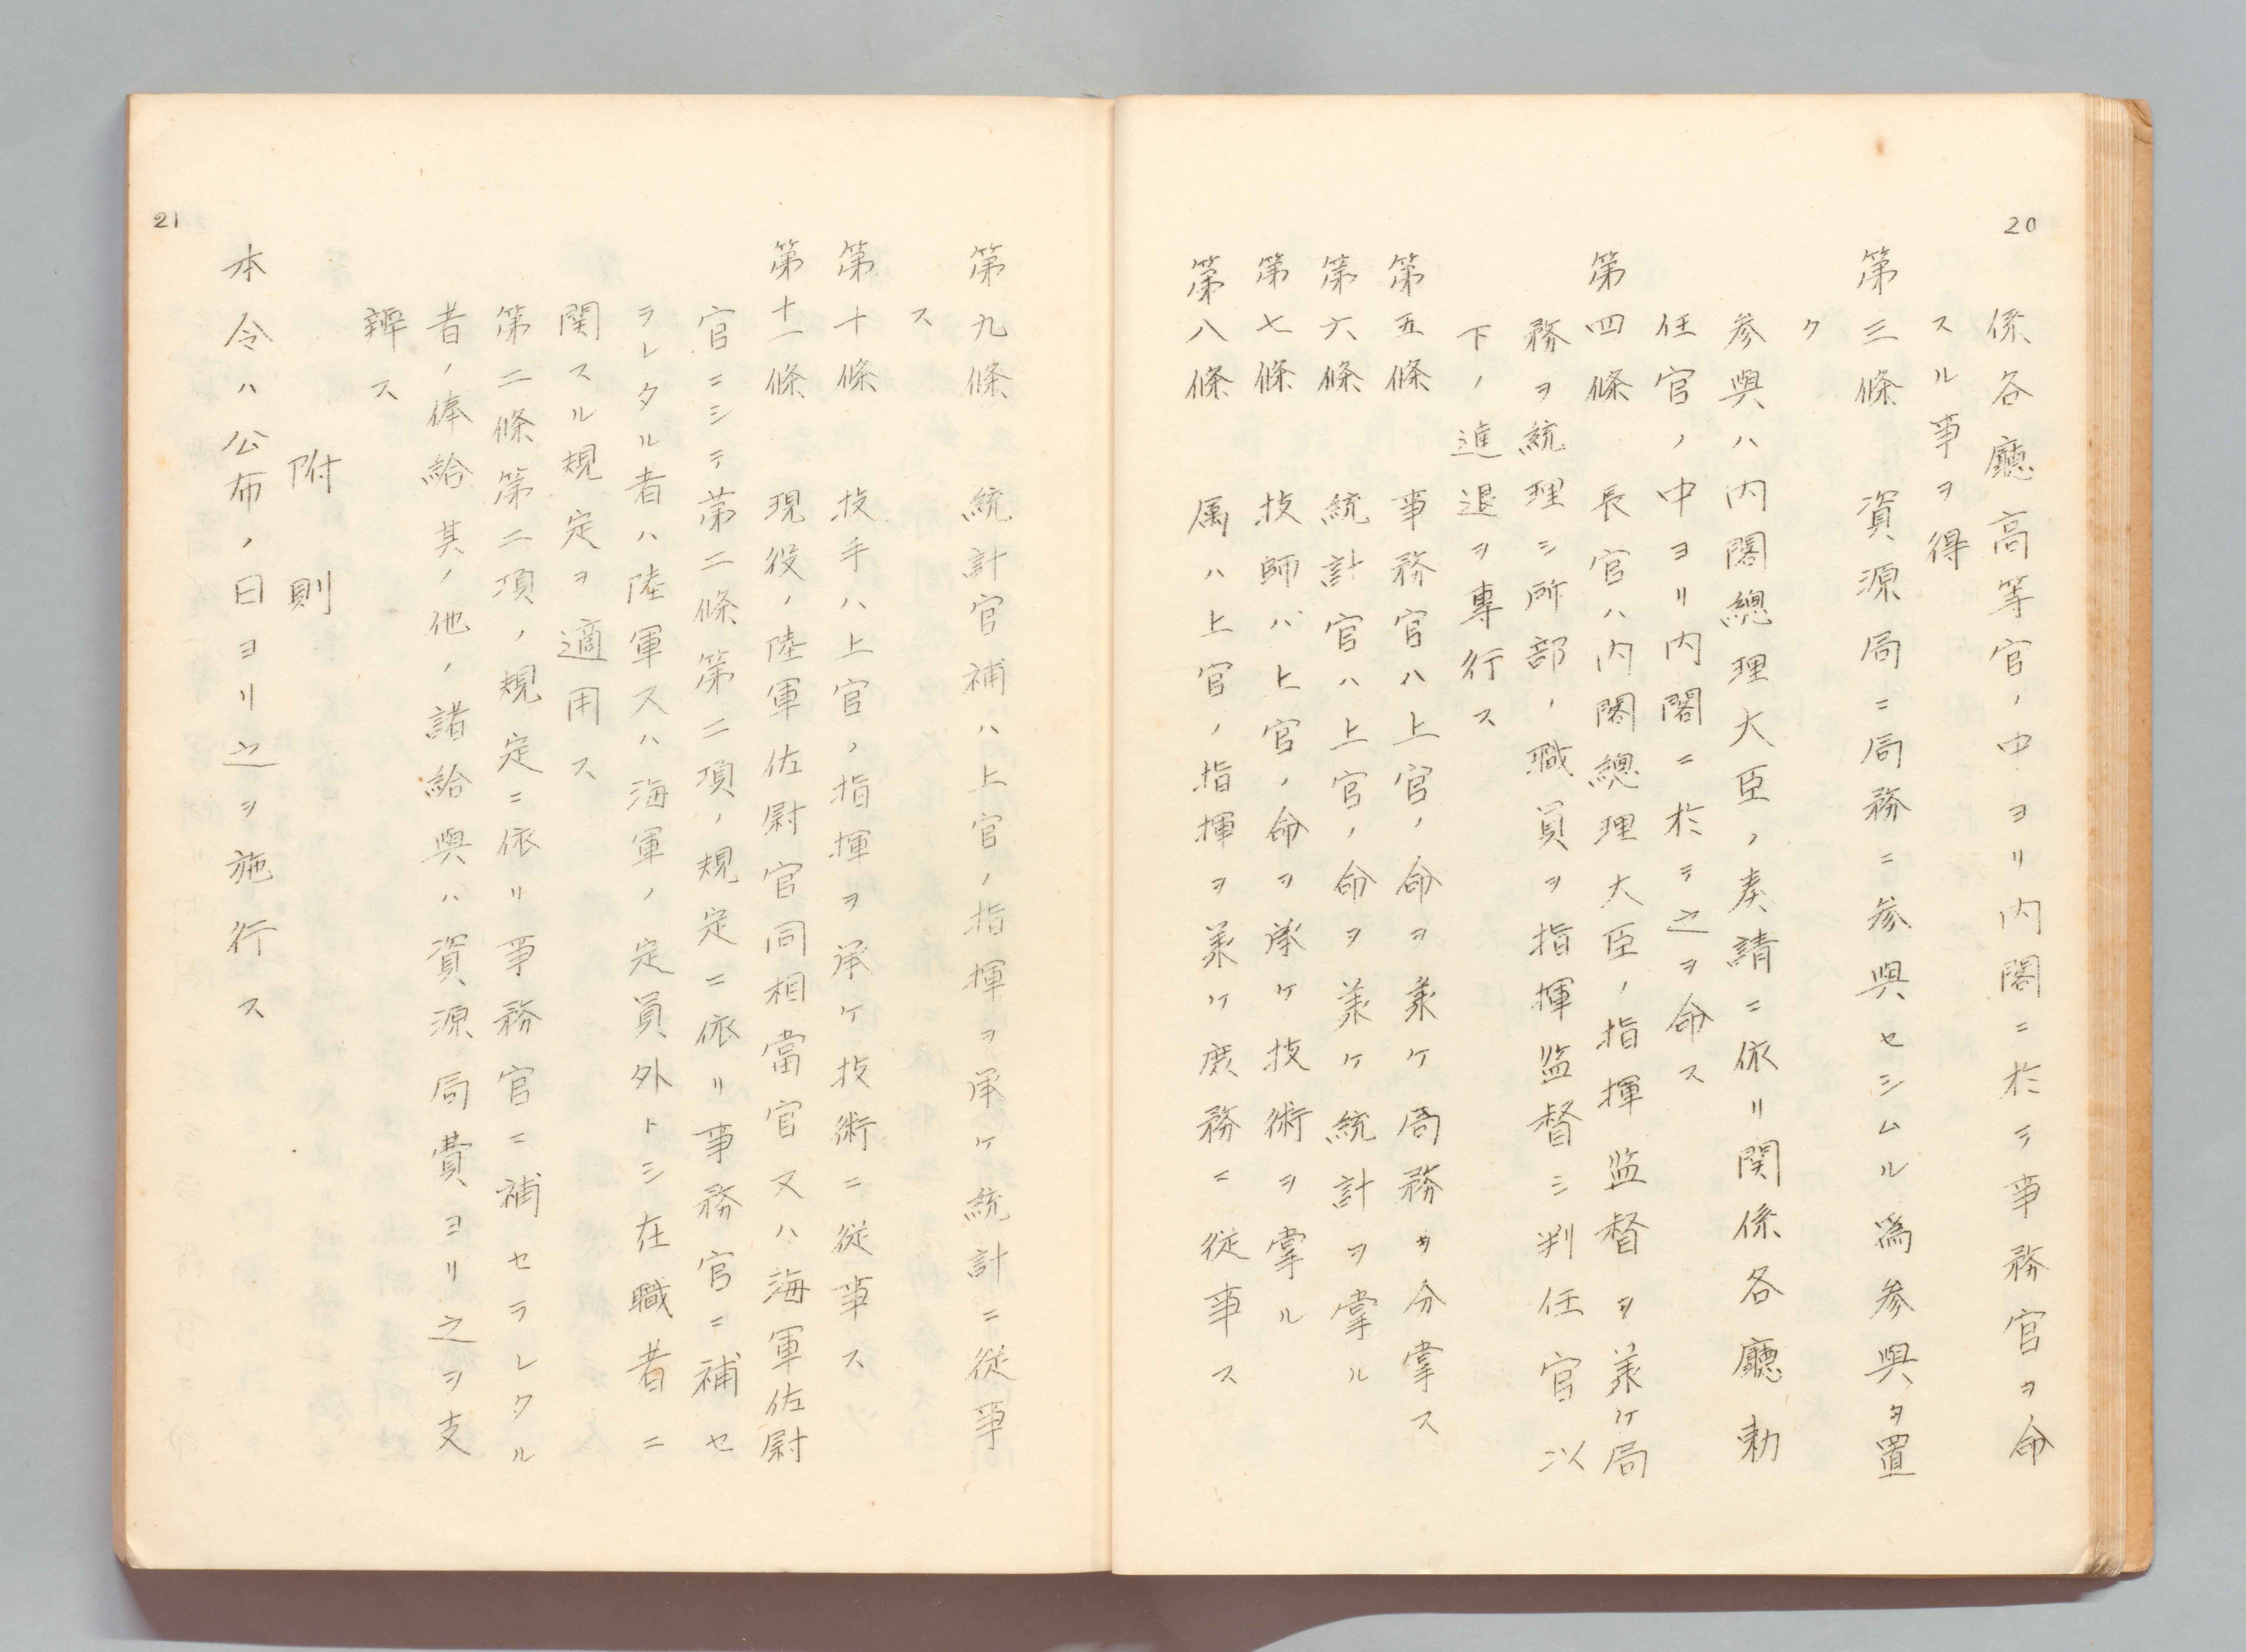 20
係各廳高等官ノ中ヨリ内閣ニ於テ事務官ヲ命
スル事ヲ得
第三條　資源局ニ局務ニ参與セシムル爲参與ヲ置
ク
参與ハ内閣總理大臣ノ奏請ニ依リ関係各廳勅
任官ノ中ヨリ内閣ニ於テ之ヲ命ス
第四條　長官ハ内閣總理大臣ノ指揮監督ヲ承ケ局
務ヲ統理シ所部ノ職員ヲ指揮監督シ判任官以
下ノ進退ヲ專行ス
第五條　事務官ハ上官ノ命ヲ承ケ局務ヲ分掌ス
第六條　統計官ハ上官ノ命ヲ承ケ統計ヲ掌ル
第七條　技師ハ上官ノ命ヲ承ケ技術ヲ掌ル
第八條　属ハ上官ノ指揮ヲ承ケ庶務ニ従事ス
第九條　統計官補ハ上官ノ指揮ヲ承ケ統計ニ従事
ス
第十條　技手ハ上官ノ指揮ヲ承ケ技術ニ従事ス
第十一條　現役ノ陸軍佐尉官同相當官又ハ海軍佐尉
官ニシテ第二條第二項ノ規定ニ依リ事務官ニ補セ
ラレタル者ハ陸軍又ハ海軍ノ定員外トシ在職者ニ
関スル規定ヲ適用ス
第二條第二項ノ規定ニ依リ事務官ニ補セラレタル
者ノ俸給其ノ他ノ諸給與ハ資源局費ヨリ之ヲ支
辨ス
附則
本令ハ公布ノ日ヨリ之ヲ施行ス
21